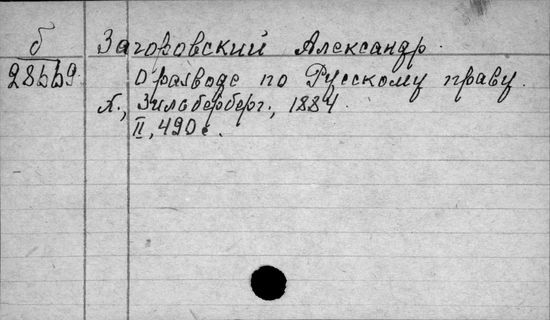 б Загоровский Александр.
28559 О разводе по Русскому праву.
Х., Зильберберг, 1884.
II, 490 с.